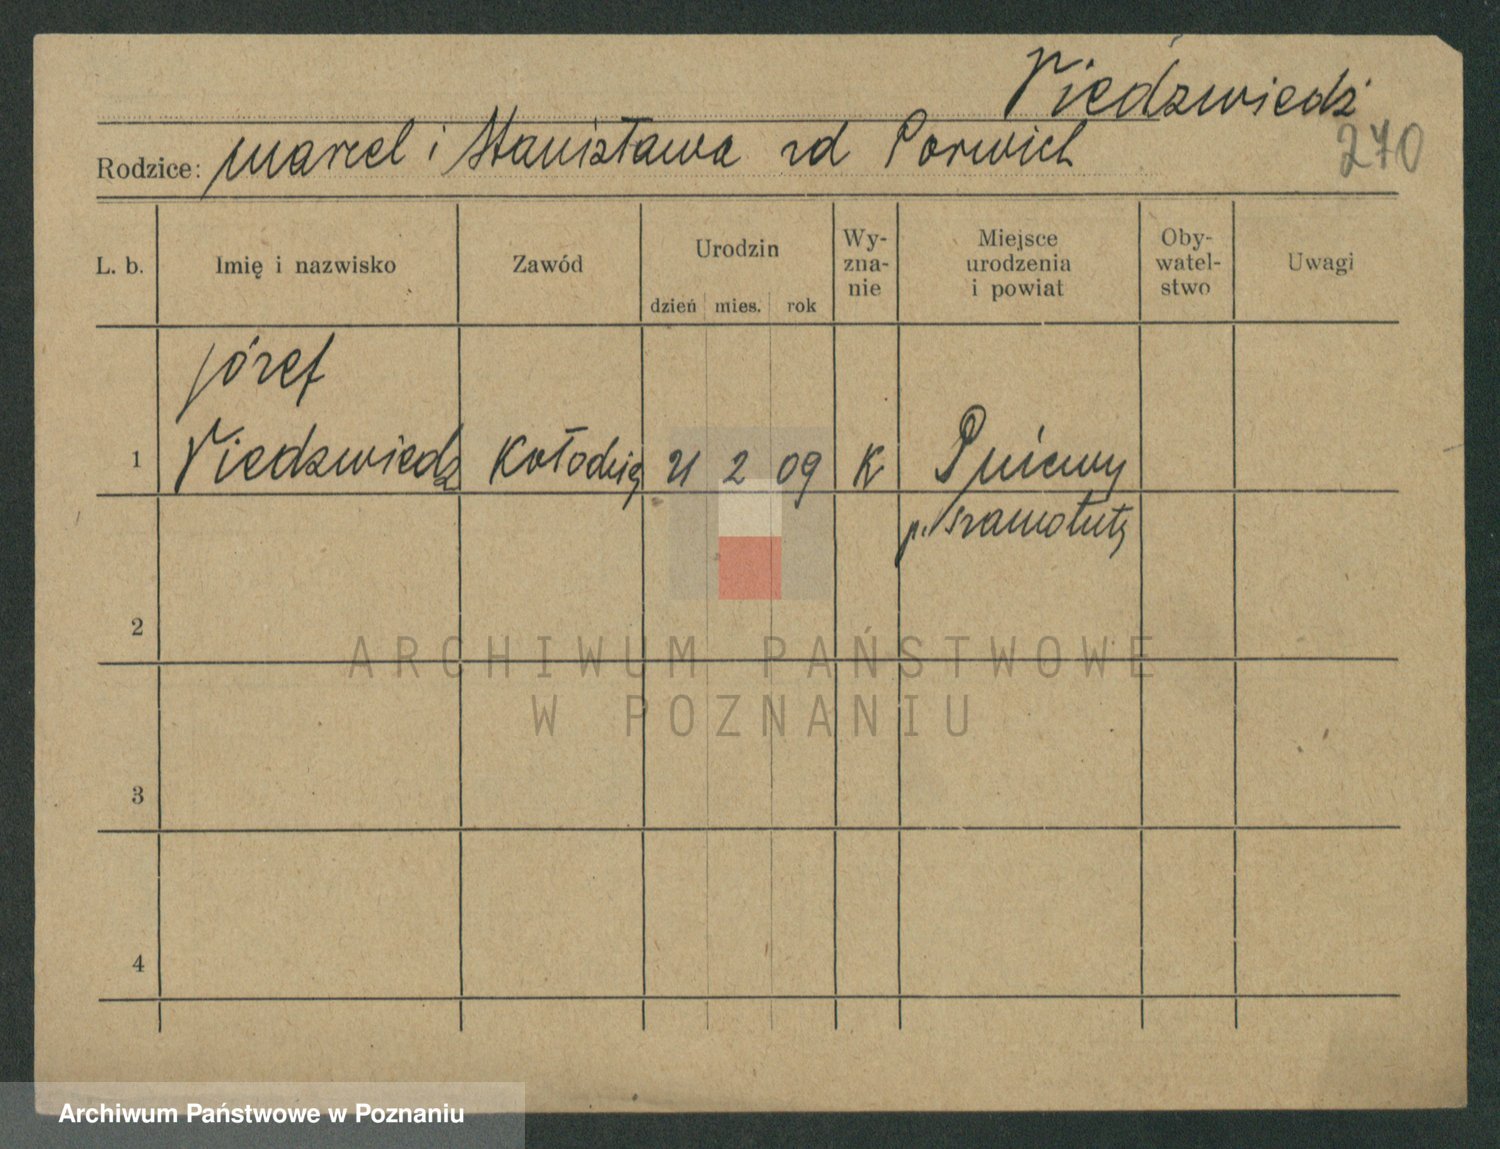 Niedzwiedź
270
Rodzice: Marcel i Stanisława zd Porwich
L. b. Imię i nazwisko Zawód Urodzin dzień mies. rok Wy-zna-nie Miejsce urodzenia i powiat Oby-watel-stwo Uwagi
Józef
1 Niedzwiedz Kołodziej 21 2 09 K Pniewy
p. Szamotuły
2
3
4
ARCHIWUM PAŃSTWOWE
W POZNANIU
Archiwum Państwowe w Poznaniu